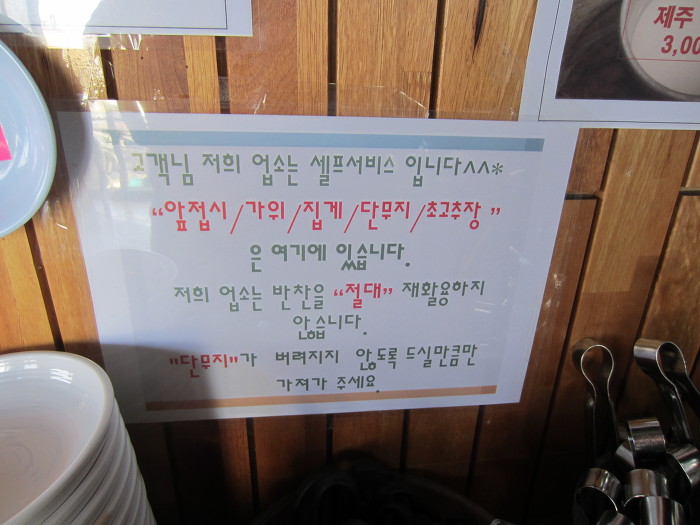 제주
3,00
고객님 저희 업소는 셀프서비스 입니다^^*
"앞접시/가위/집게/단무지/초고추장"
은 여기에 있습니다.
저희 업소는 반찬을 "절대" 재활용하지
안습니다.
"단무지"가 버려지지 않도록 드실만큼만
가져가 주세요.